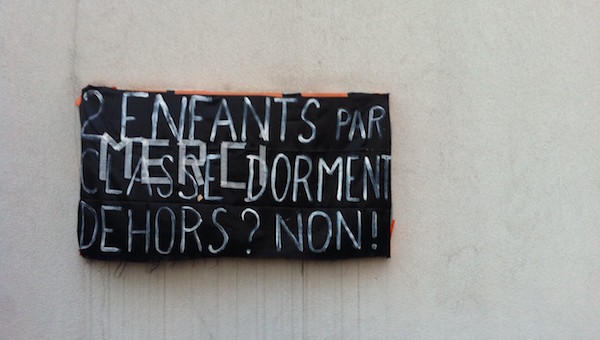 2 ENFANTS PAR
MERCI
CLASSE DORMENT
DEHORS ? NON !